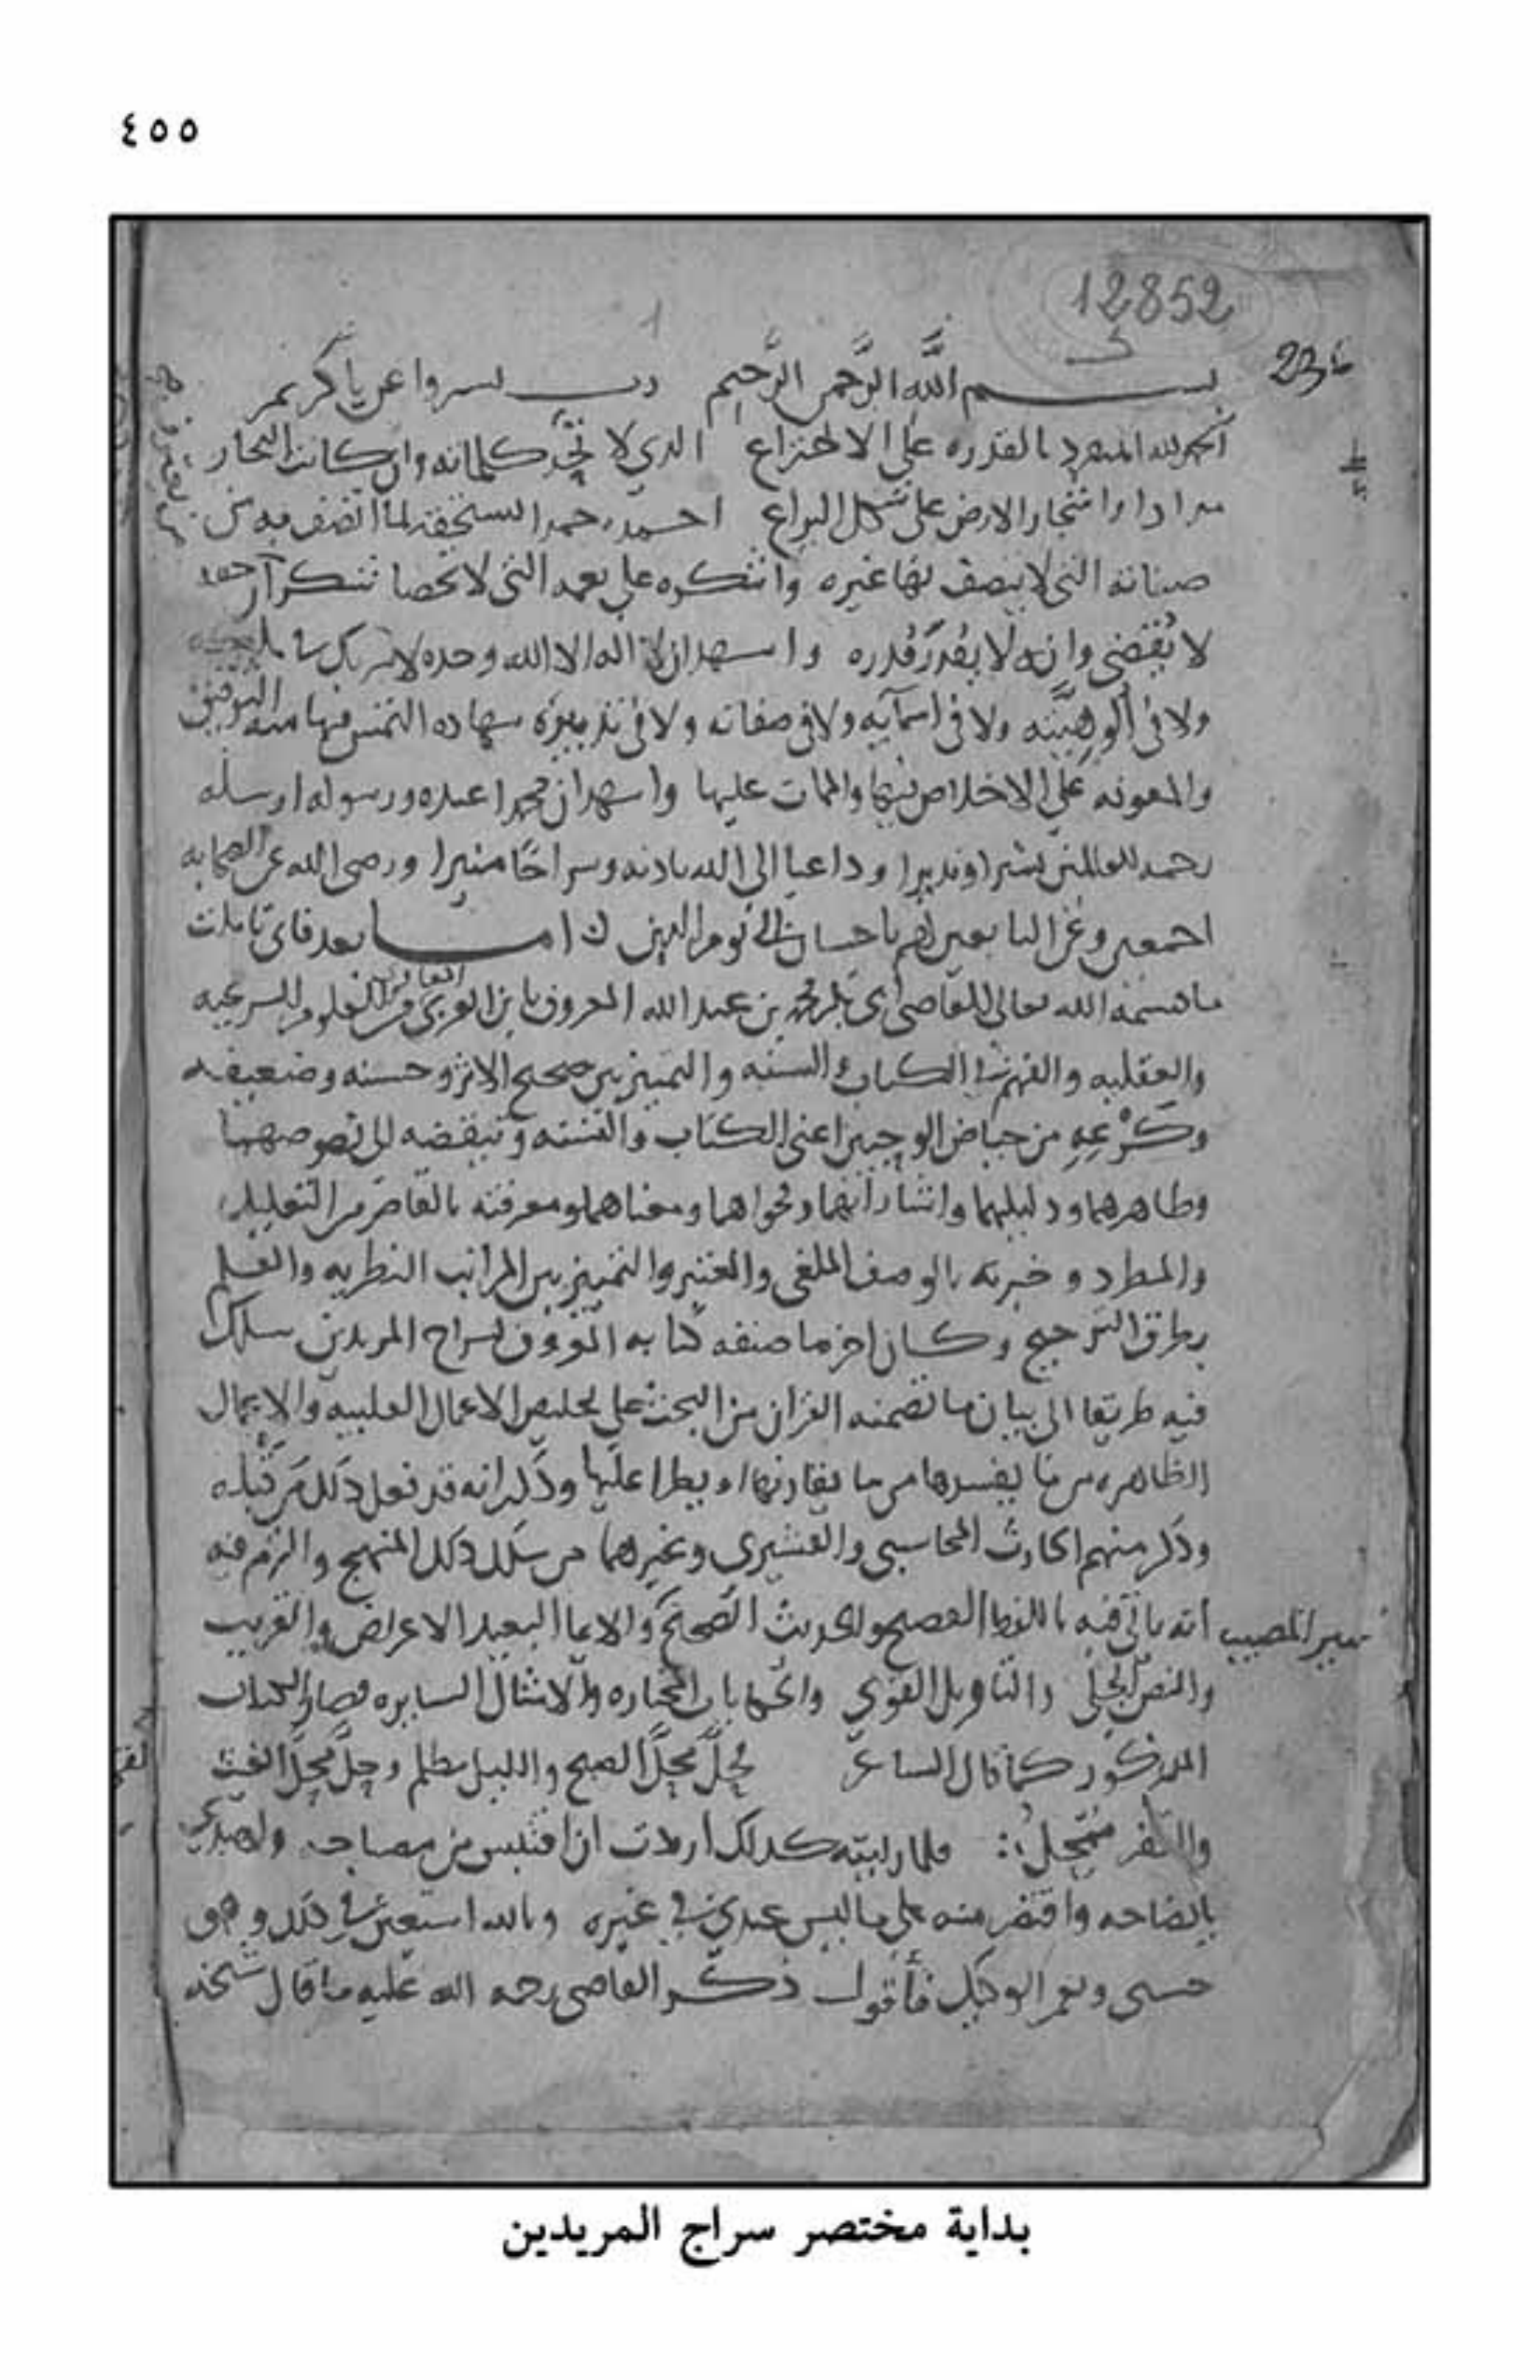 ٤٥٥
12852
236
بسم الله الرحمن الرحيم رب يسر واعن يا كريم
الحمد لله المنفرد بالقدره على الاختراع الذي لا تحد كلماته وان كانت البحار
مدادا واشجار الارض على شكل اليراع احمده حمدا لما اتصف به من
صفاته التي لا يتصف بها غيره واشكره على نعمه التي لا تحصا شكرا
لا يقضى وانه لا يقدر قدره واشهد ان لا اله الا الله وحده لا شريك
ولا في ألوهيته ولا في اسمآيه ولا في صفاته ولا في تدبيره شهاده التمس فيها منه التوفيق
والمعونه على الاخلاص فيها والممات عليها واشهد ان محمدا عبده ورسوله ارسله
رحمه للعالمين بشيرا ونذيرا وداعيا الى الله باذنه وسراجا منيرا ورضى الله عن الصحابه
اجمعين وعن التابعين لهم باحسان الى يوم الدين اما بعد فاني تاملت
ما قسمه الله تعالى للقاضي ابي بكر محمد بن عبد الله المعروف بابن العربي من العلوم الشرعيه
والعقليه والفهم في الكتاب والسنه والتمييز بين صحيح الاثر وحسنه وضعيفه
وكرعه من حياض الوحيين اعني الكتاب والسنه لنصوصهما
وظاهرهما ودليليهما واشاراتهما وفحواهما ومعناهما ومعرفته بالقاصر من التعليل
والمطرد وخبرته بالوصف الملغى والمعتبر والتمييز بين المراتب النظريه والعلم
بطرق الترجيح وكان اخر ما صنفه كتابه المعروف بسراج المريدين سلك
فيه طريقا الى بيان ما تضمنه القران من البحث على تخليص الاعمال القلبيه والاعمال
الظاهره من ما يفسدها من ما يقارنها او يطرا عليها وذكر انه قد فعل ذلك من قبله
وذكر منهم الحارث المحاسبي والقشيري وغيرهما من سلك ذلك المنهج والتزم فيه
انه ياتي فيه باللفظ الفصيح والحديث الصحيح والايما البعيد الاعراض والقريب
والنص الجلي والتاويل القوي والحكايات المختاره والامثال السايره فصار الكتاب
المذكور كما قال الشاعر يحل محل الصبح والليل مظلم وحل محل الغيث
والقفر ممحل فلما رايته كذلك اردت ان اقتبس من مصباحه
واقتصر منه على ما ليس عندي في غيره وبالله استعين في ذلك وهو
حسبي ونعم الوكيل فأقول ذكر القاضي رحمه الله عليه ما قال شيخه
بداية مختصر سراج المريدين